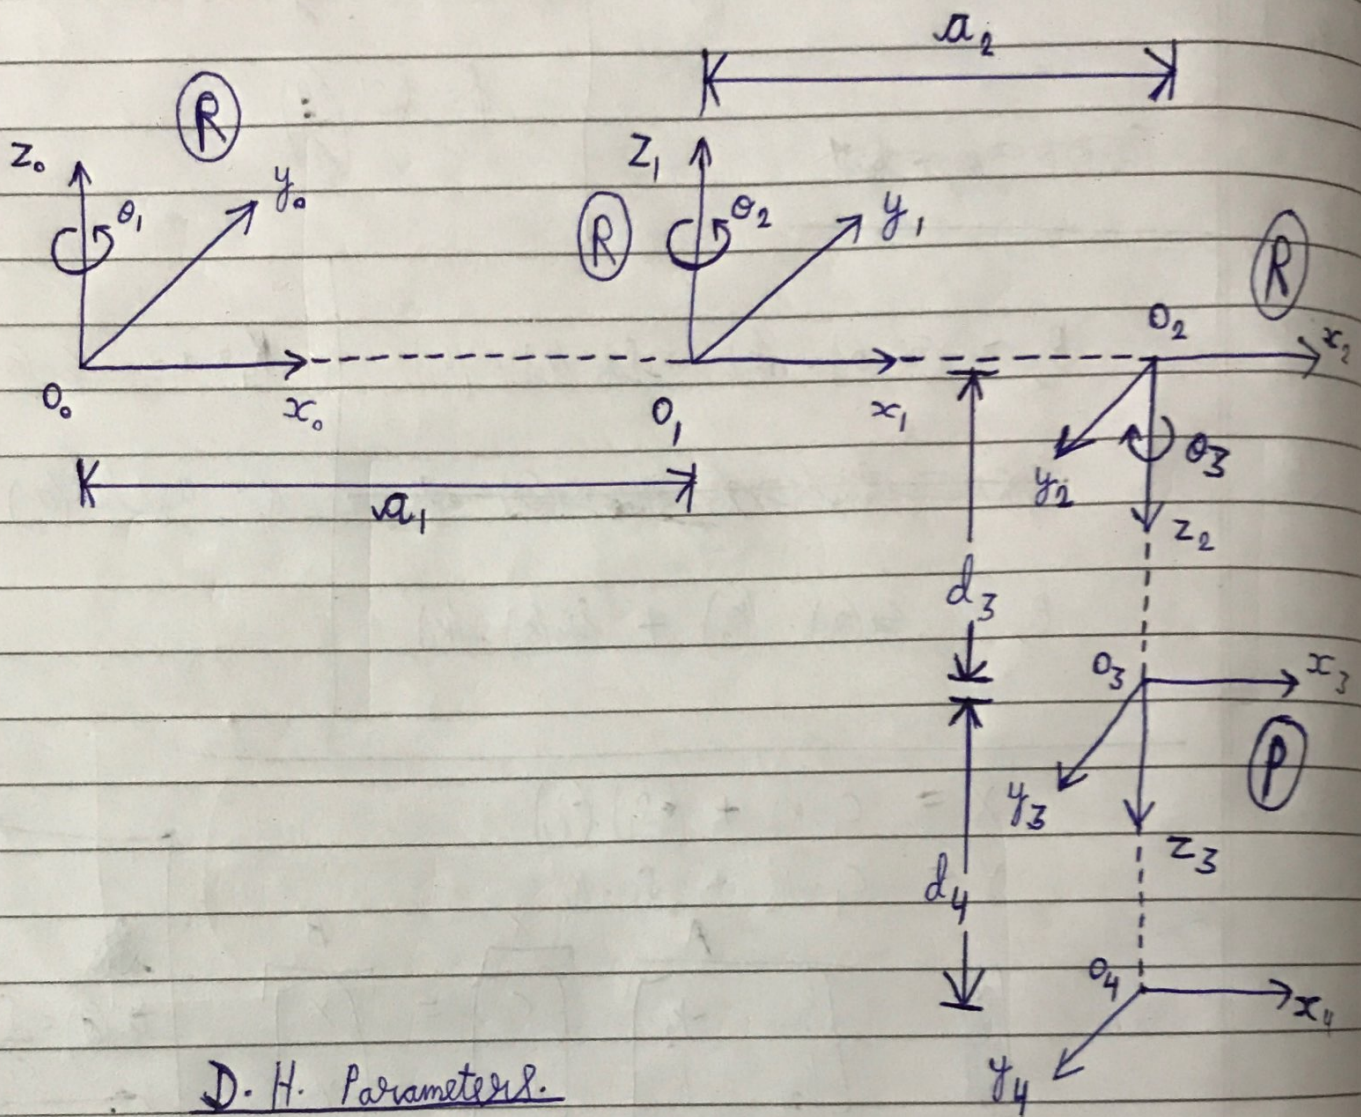 a₂
R
z₀
θ₁
y₀
R
z₁
θ₂
y₁
R
o₂
x₂
o₀
x₀
o₁
x₁
y₂
θ₃
z₂
a₁
d₃
o₃
x₃
y₃
P
z₃
d₄
o₄
x₄
y₄
D. H. Parameters.